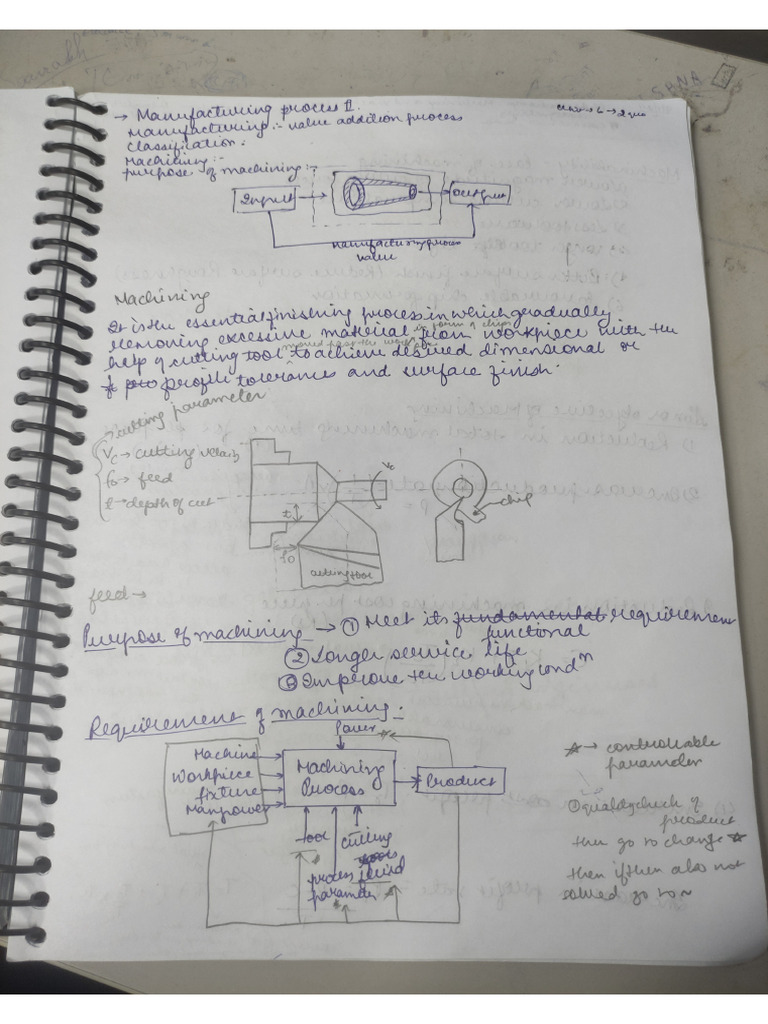 → Manufacturing process II.
Manufacturing :- value addition process
Classification :
Machining :-
purpose of machining :-
Input
Output
manufacturing process
value
Machining
It is the essential finishing process in which gradually
removing excessive material in form of chips from workpiece with the
help of cutting tool moved past the work to achieve desired dimensional or
profile tolerances and surface finish.
→ cutting parameter
Vc → cutting velocity
fo → feed
t → depth of cut
t
fo
cutting tool
chip
feed →
Purpose of machining → ① Meet its fundamental requirement
functional
② Longer service life
③ Improve the working condn
Requirement of machining :
Power
Machine
Workpiece
fixture
Manpower
Machining
Process
Product
tool
cutting
fluid
process
parameter
☆ → controllable
parameter
① quality check of
product
then go to change ☆
then if then also not
solved go to ~